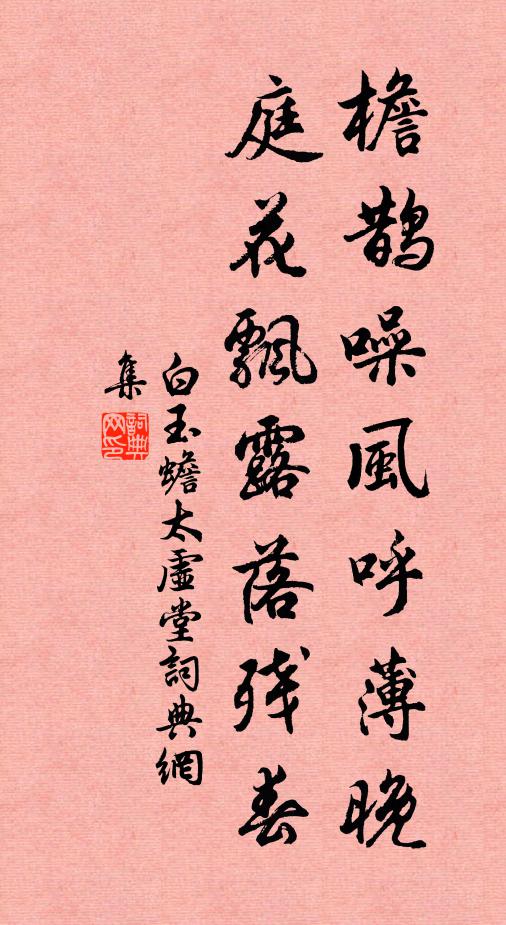 檐鹊噪風呼薄晚
庭花飄露落残春
白玉蟾太虛堂詞典網
集
詞典网印